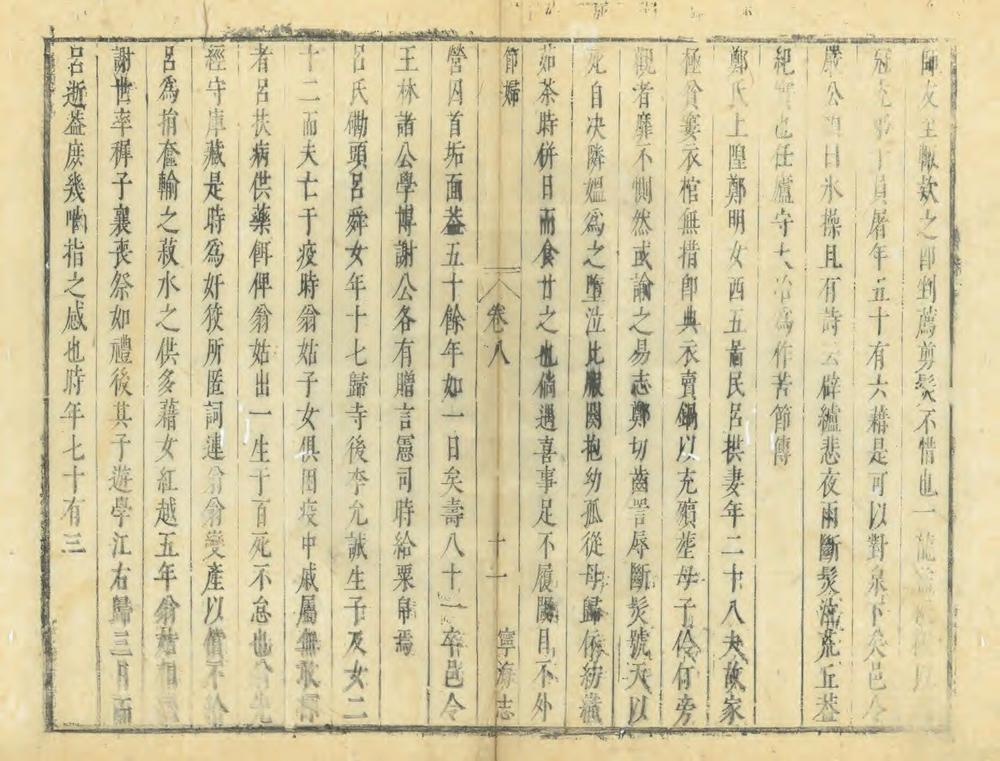 師友至輙欵之即剉薦剪髮不惜也一
冠充 下貟屠年五十有六藉是可以對泉下矣邑令
嚴公 曰氷操且有詩云辟纑悲夜雨斷髮泣荒丘葢
紀實也任廬守大冶為作苦節傳
鄭氏上隍鄭明女西五啚民呂拱妻年二十八夫故家
極貧窶衣棺無措即典衣賣鍋以充殯塟母子伶仃旁
觀者靡不惻然或諭之易志鄭切齒詈辱斷髮號天以
死自决隣媼爲之墮泣比服闋抱幼孤從母歸依紡織
茹茶時併日而食甘之也倘遇喜事足不履閾目不外
節婦 卷八 十一 寧海志
營囚首垢面葢五十餘年如一日矣壽八十一卒邑令
王林諸公學博謝公各有贈言憲司時給粟帛焉
呂氏磡頭呂舜女年十七歸寺後李允誠生子及女二
十二而夫亡于疫時翁姑子女俱困疫中戚屬無敢
者呂扶病供藥餌俾翁姑出一生于百死不怠也翁先
經守庫藏是時爲奸筊所匿詞連翁翁變產以償不給
呂爲捐奩輸之菽水之供多藉女紅越五年翁姑相
謝世率穉子襄喪祭如禮後其子遊學江右歸三月而
呂逝葢庶幾嚙指之感也時年七十有三